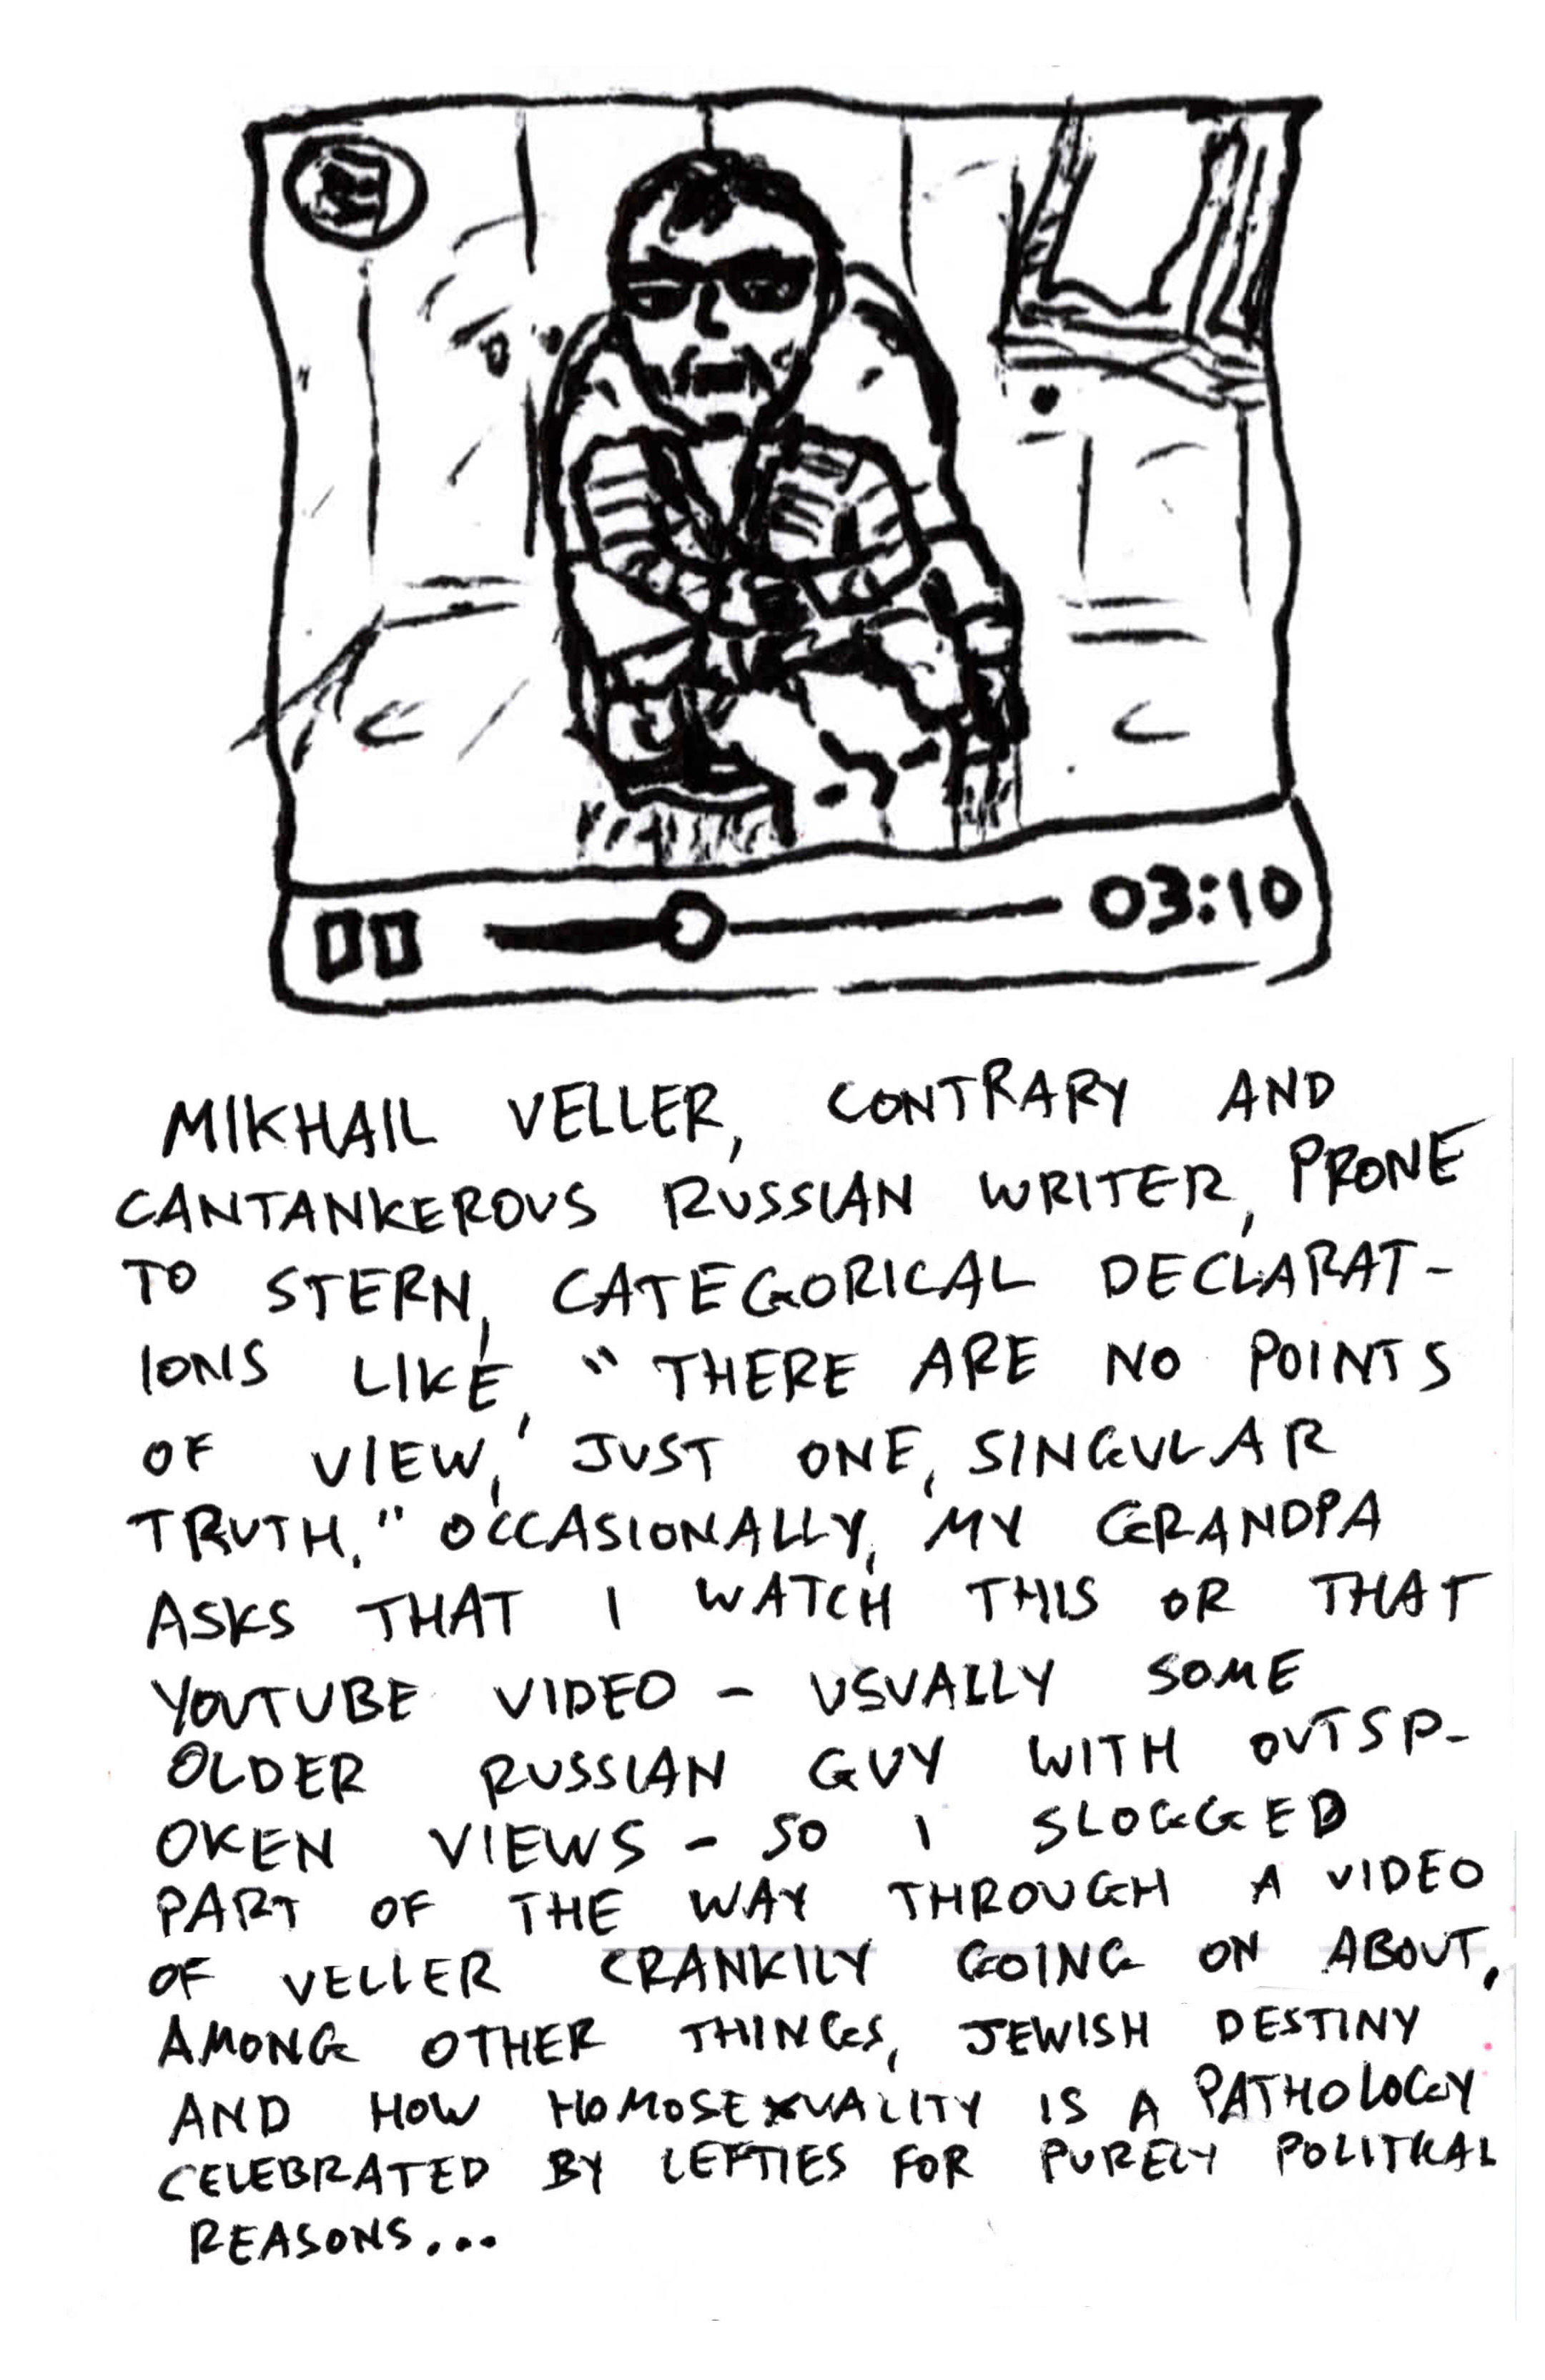 03:10
MIKHAIL VELLER, CONTRARY AND
CANTANKEROUS RUSSIAN WRITER, PRONE
TO STERN, CATEGORICAL DECLARAT-
IONS LIKE, "THERE ARE NO POINTS
OF VIEW,' JUST ONE, SINGULAR
TRUTH." OCCASIONALLY, MY GRANDPA
ASKS THAT I WATCH THIS OR THAT
YOUTUBE VIDEO - USUALLY SOME
OLDER RUSSIAN GUY WITH OUTSP-
OKEN VIEWS - SO I SLOGGED
PART OF THE WAY THROUGH A VIDEO
OF VELLER CRANKILY GOING ON ABOUT,
AMONG OTHER THINGS, JEWISH DESTINY
AND HOW HOMOSEXUALITY IS A PATHOLOGY
CELEBRATED BY LEFTIES FOR PURELY POLITICAL
REASONS...